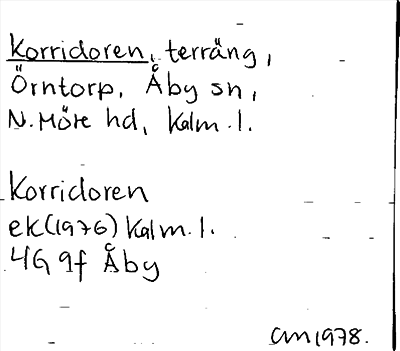 Korridoren, terräng,
Örntorp, Åby sn,
N. Möre hd, Kalm. l.
Korridoren
ek (1976) Kalm. l.
4G 9f Åby
CM 1978.